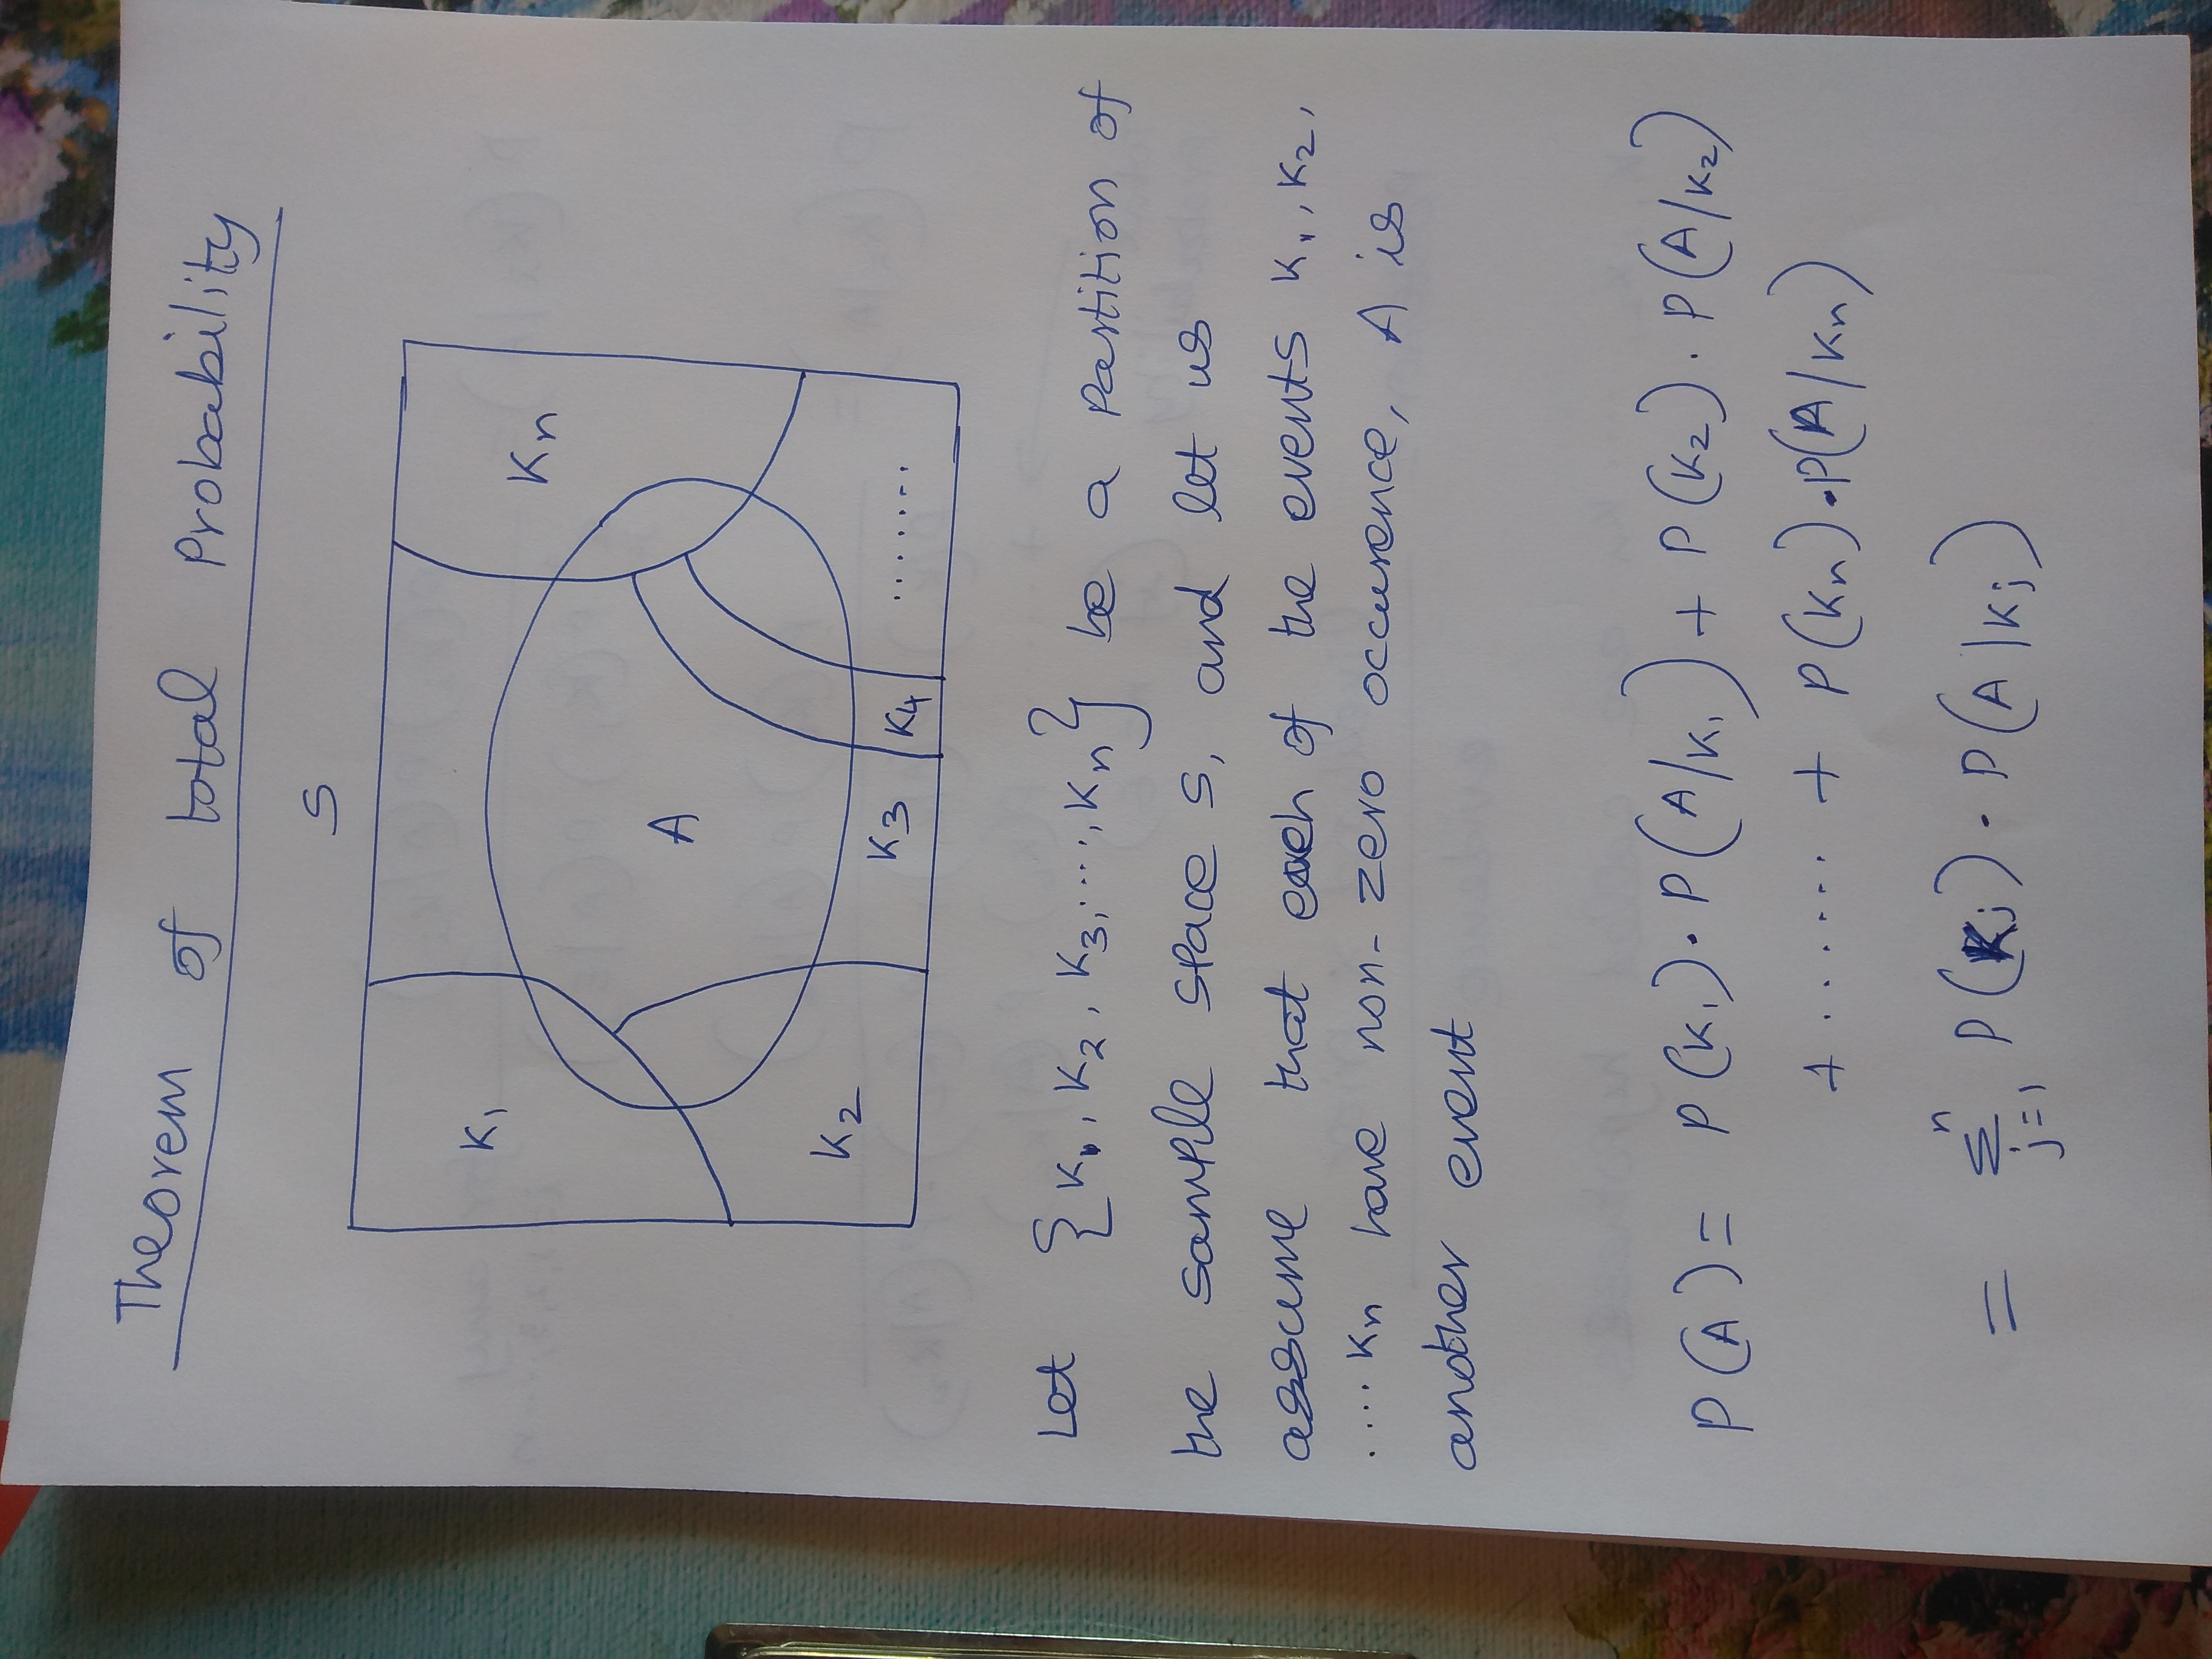 Theorem of total Probability
S
K₁
Kn
A
K₂
K₃
K₄
.......
Let {K₁, K₂, K₃, ..., Kn} be a partition of
the sample space S, and let us
assume that each of the events K₁, K₂,
.... Kn have non-zero occurence, A is
another event
P(A) = P(K₁) · P(A/K₁) + P(K₂) · P(A/K₂)
+ ....... + P(Kn) · P(A/Kn)
= Σ_{j=1}^{n} P(Kj) · P(A|Kj)